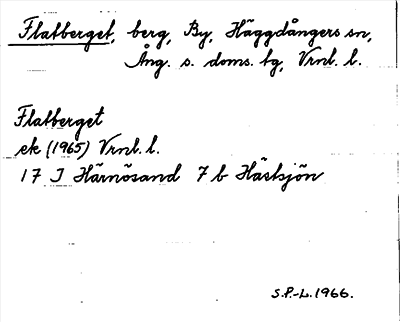 Flatberget, berg, By, Häggdångers sn,
Ång. s. doms. tg, Vrnl. l.
Flatberget
ek (1965) Vrnl. l.
17 J Härnösand 7 b Hästsjön
S.P.-L. 1966.